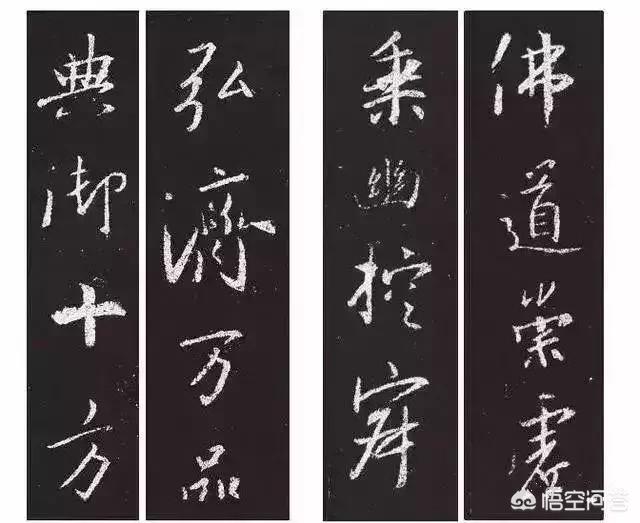 佛道崇虛
乘幽控寂
弘濟万品
典御十方
悟空问答